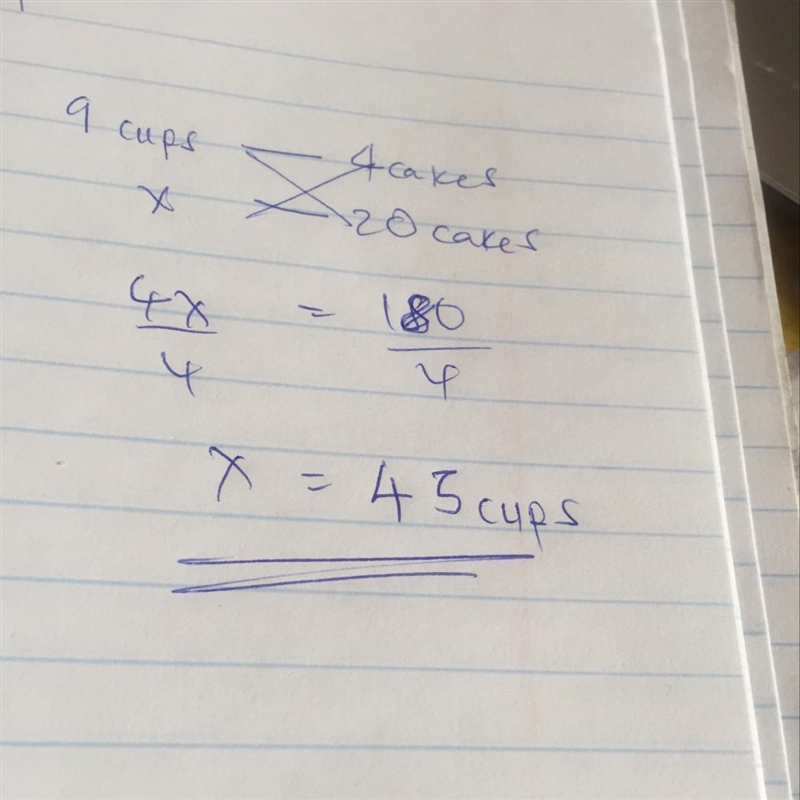 9 cups 4 cakes
x 20 cakes
4x = 180
4 4
x = 45 cups